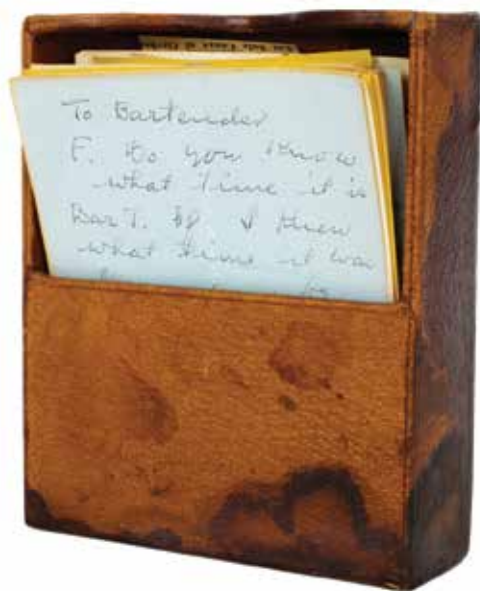 To Bartender
F. Do you know
what time it is
Bart. If I knew
what time it was